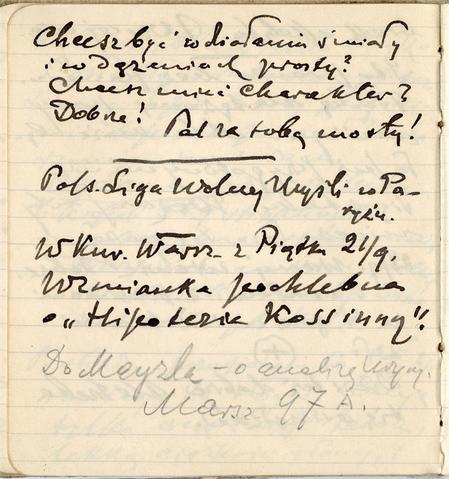 Chcesz być w działaniu śmiały
i w dążeniach prosty?
Chcesz mieć charakter?
Dobrze! Pal za sobą mosty!
Pols. Liga Wolnej Myśli w Pa-
ryżu.
W Kur. Warsz. z Piątku 21/9.
Wzmianka pochlebna
o „Hipotezie Kossinny"!
Do Mayzla – o analizę
Marsz. 97 A.